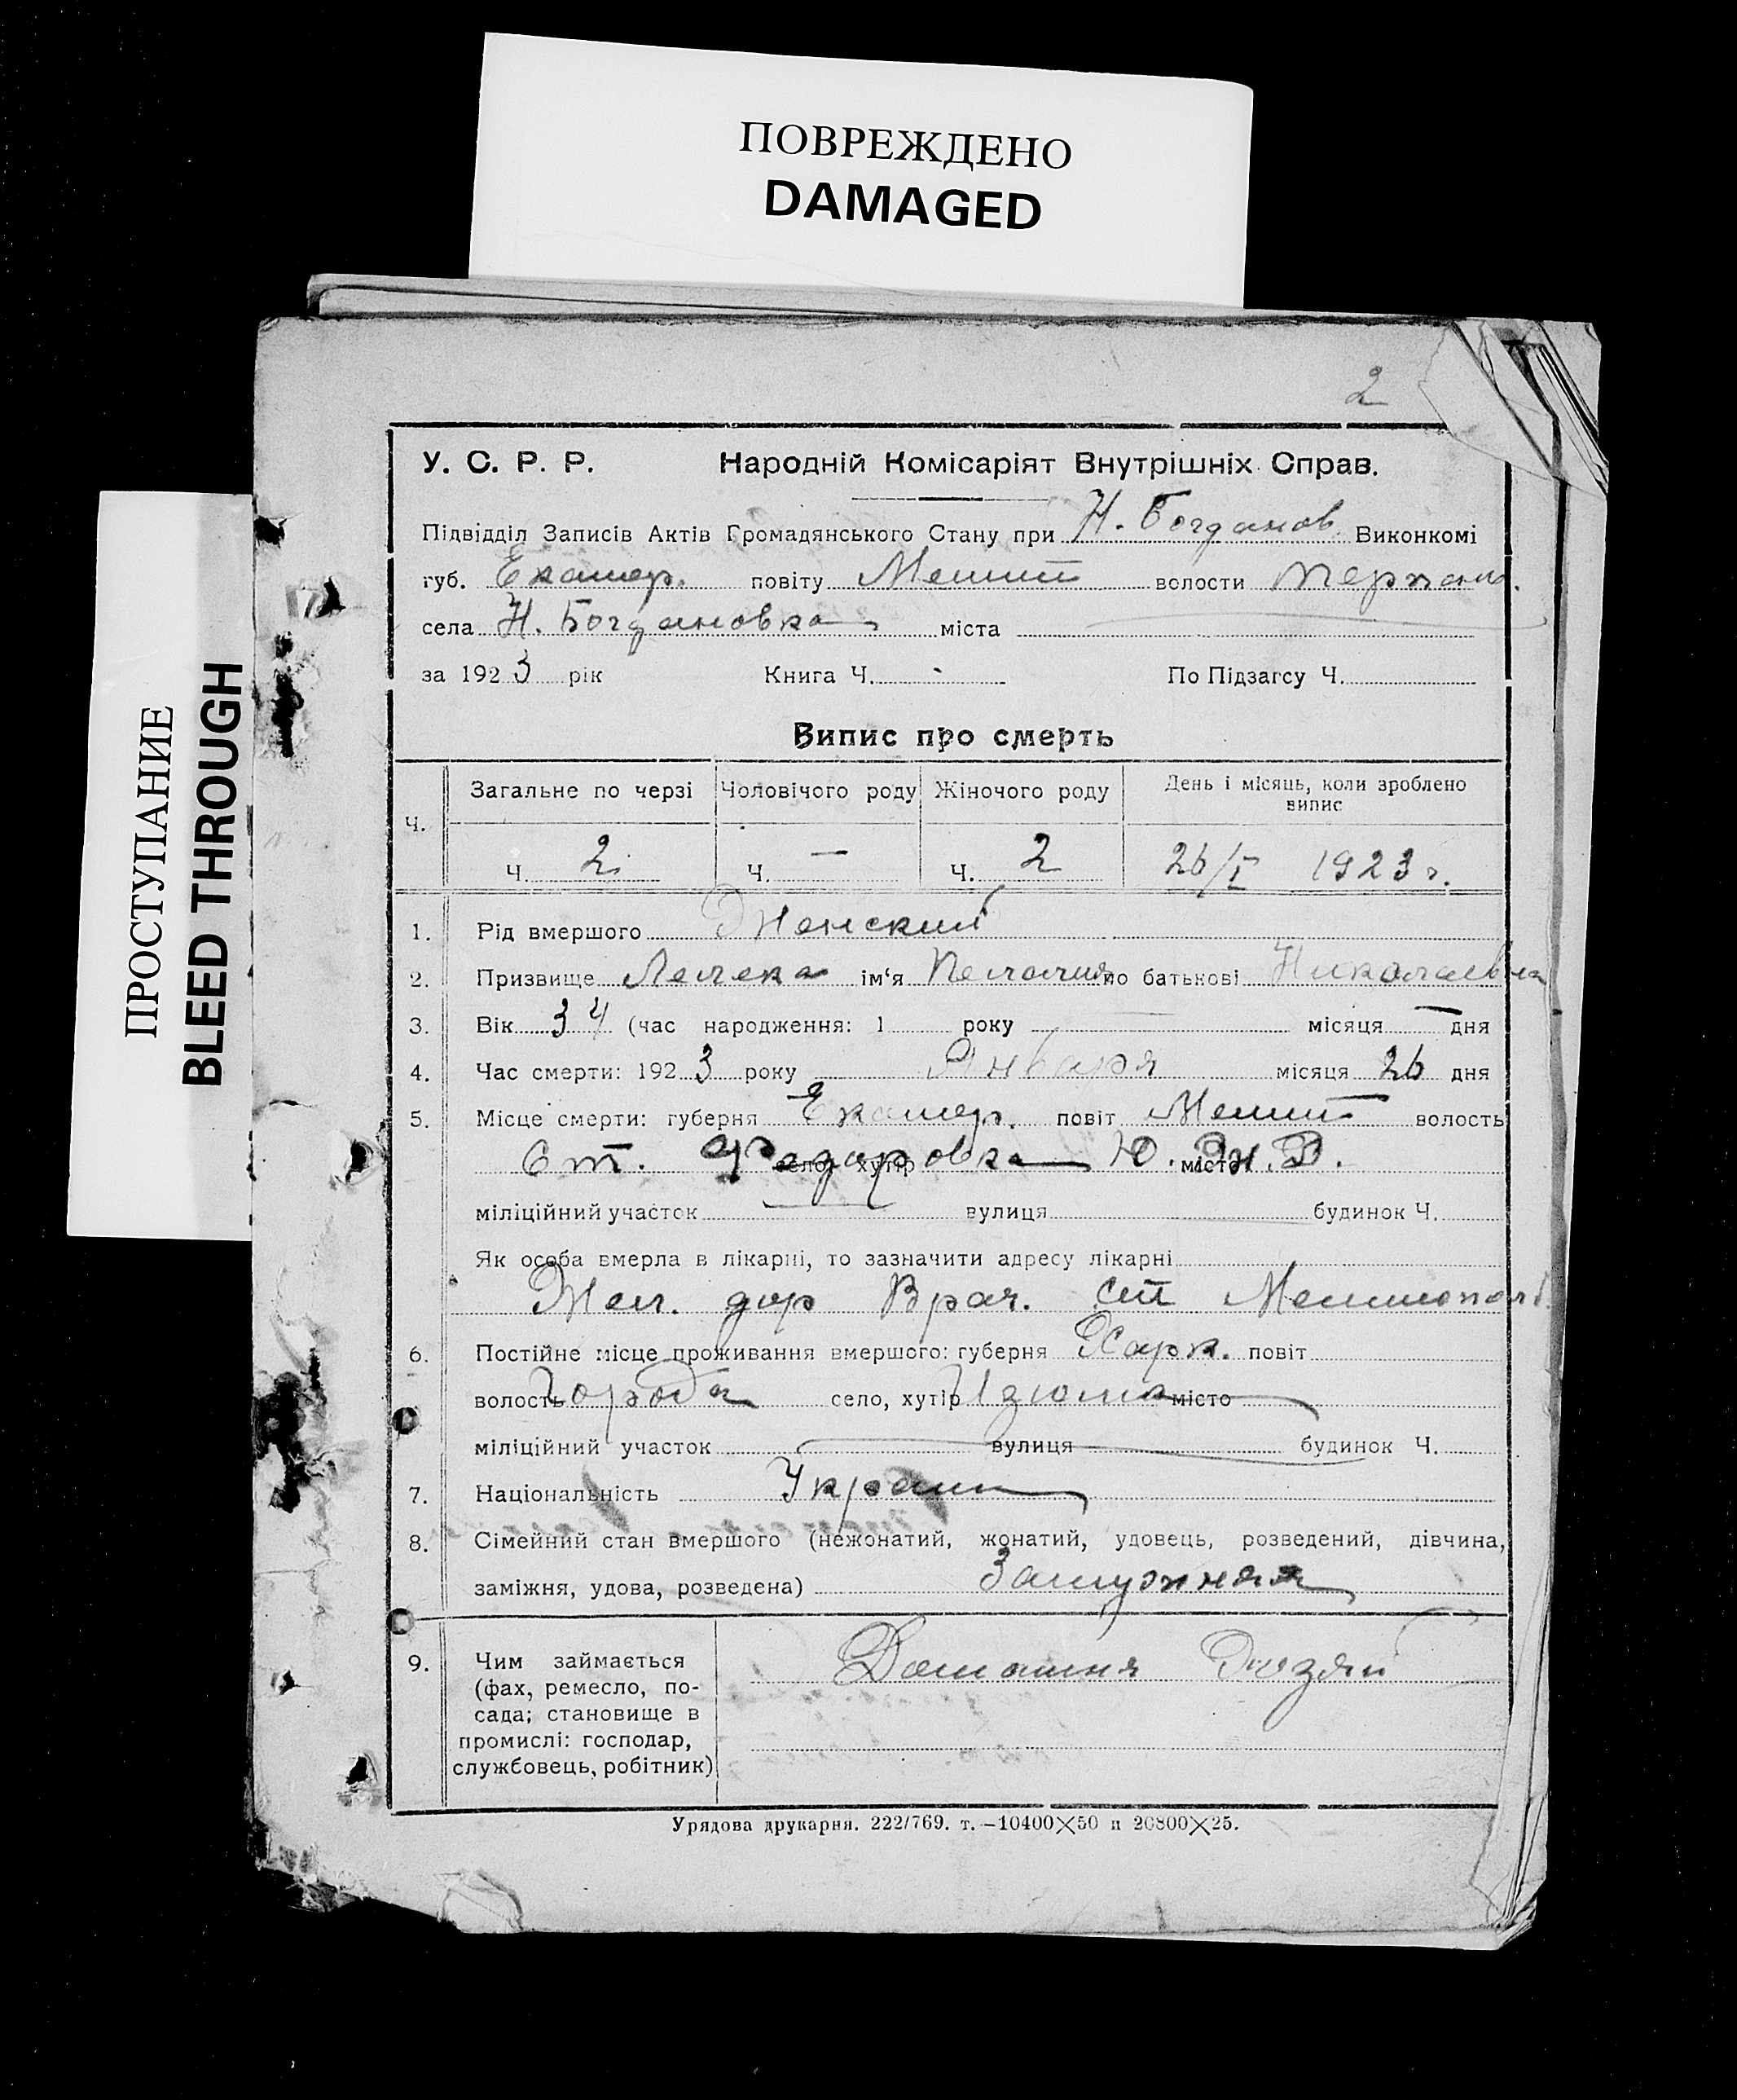 ПОВРЕЖДЕНО
DAMAGED
ПРОСТУПАНИЕ
BLEED THROUGH
2
У. С. Р. Р. Народній Комісаріят Внутрішніх Справ.
Підвідділ Записів Актів Громадянського Стану при Н. Богданов. Виконкомі
губ. Екатер. повіту Мелит волости Терпен.
села Н. Богдановка міста
за 1923 рік Книга Ч. По Підзагсу Ч.
Випис про смерть
Ч. Загальне по черзі Чоловічого роду Жіночого роду День і місяць, коли зроблено випис
Ч. 2 Ч. — Ч. 2 26/I 1923 г.
1. Рід вмершого Женский
2. Призвище Лелека ім‘я Пелагия по батькові Николаевна
3. Вік 34 (час народження: 1 року місяця дня
4. Час смерти: 1923 року Января місяця 26 дня
5. Місце смерти: губерня Екатер. повіт Мелит волость
Ст. Федоровка село, хутір Ю. місто
міліційний участок вулиця будинок Ч.
Як особа вмерла в лікарні, то зазначити адресу лікарні
Жел. дор Врач. ст Мелитополь
6. Постійне місце проживання вмершого: губерня Харк. повіт
волость города село, хутір Изюма місто
міліційний участок вулиця будинок Ч.
7. Національність Украин
8. Сімейний стан вмершого (нежонатий, жонатий, удовець, розведений, дівчина,
заміжня, удова, розведена) Замужняя
9. Чим займається Домашня Хозяй
(фах, ремесло, по-
сада; становище в
промислі: господар,
службовець, робітник)
Урядова друкарня. 222/769. т.—10400×50 и 20800×25.